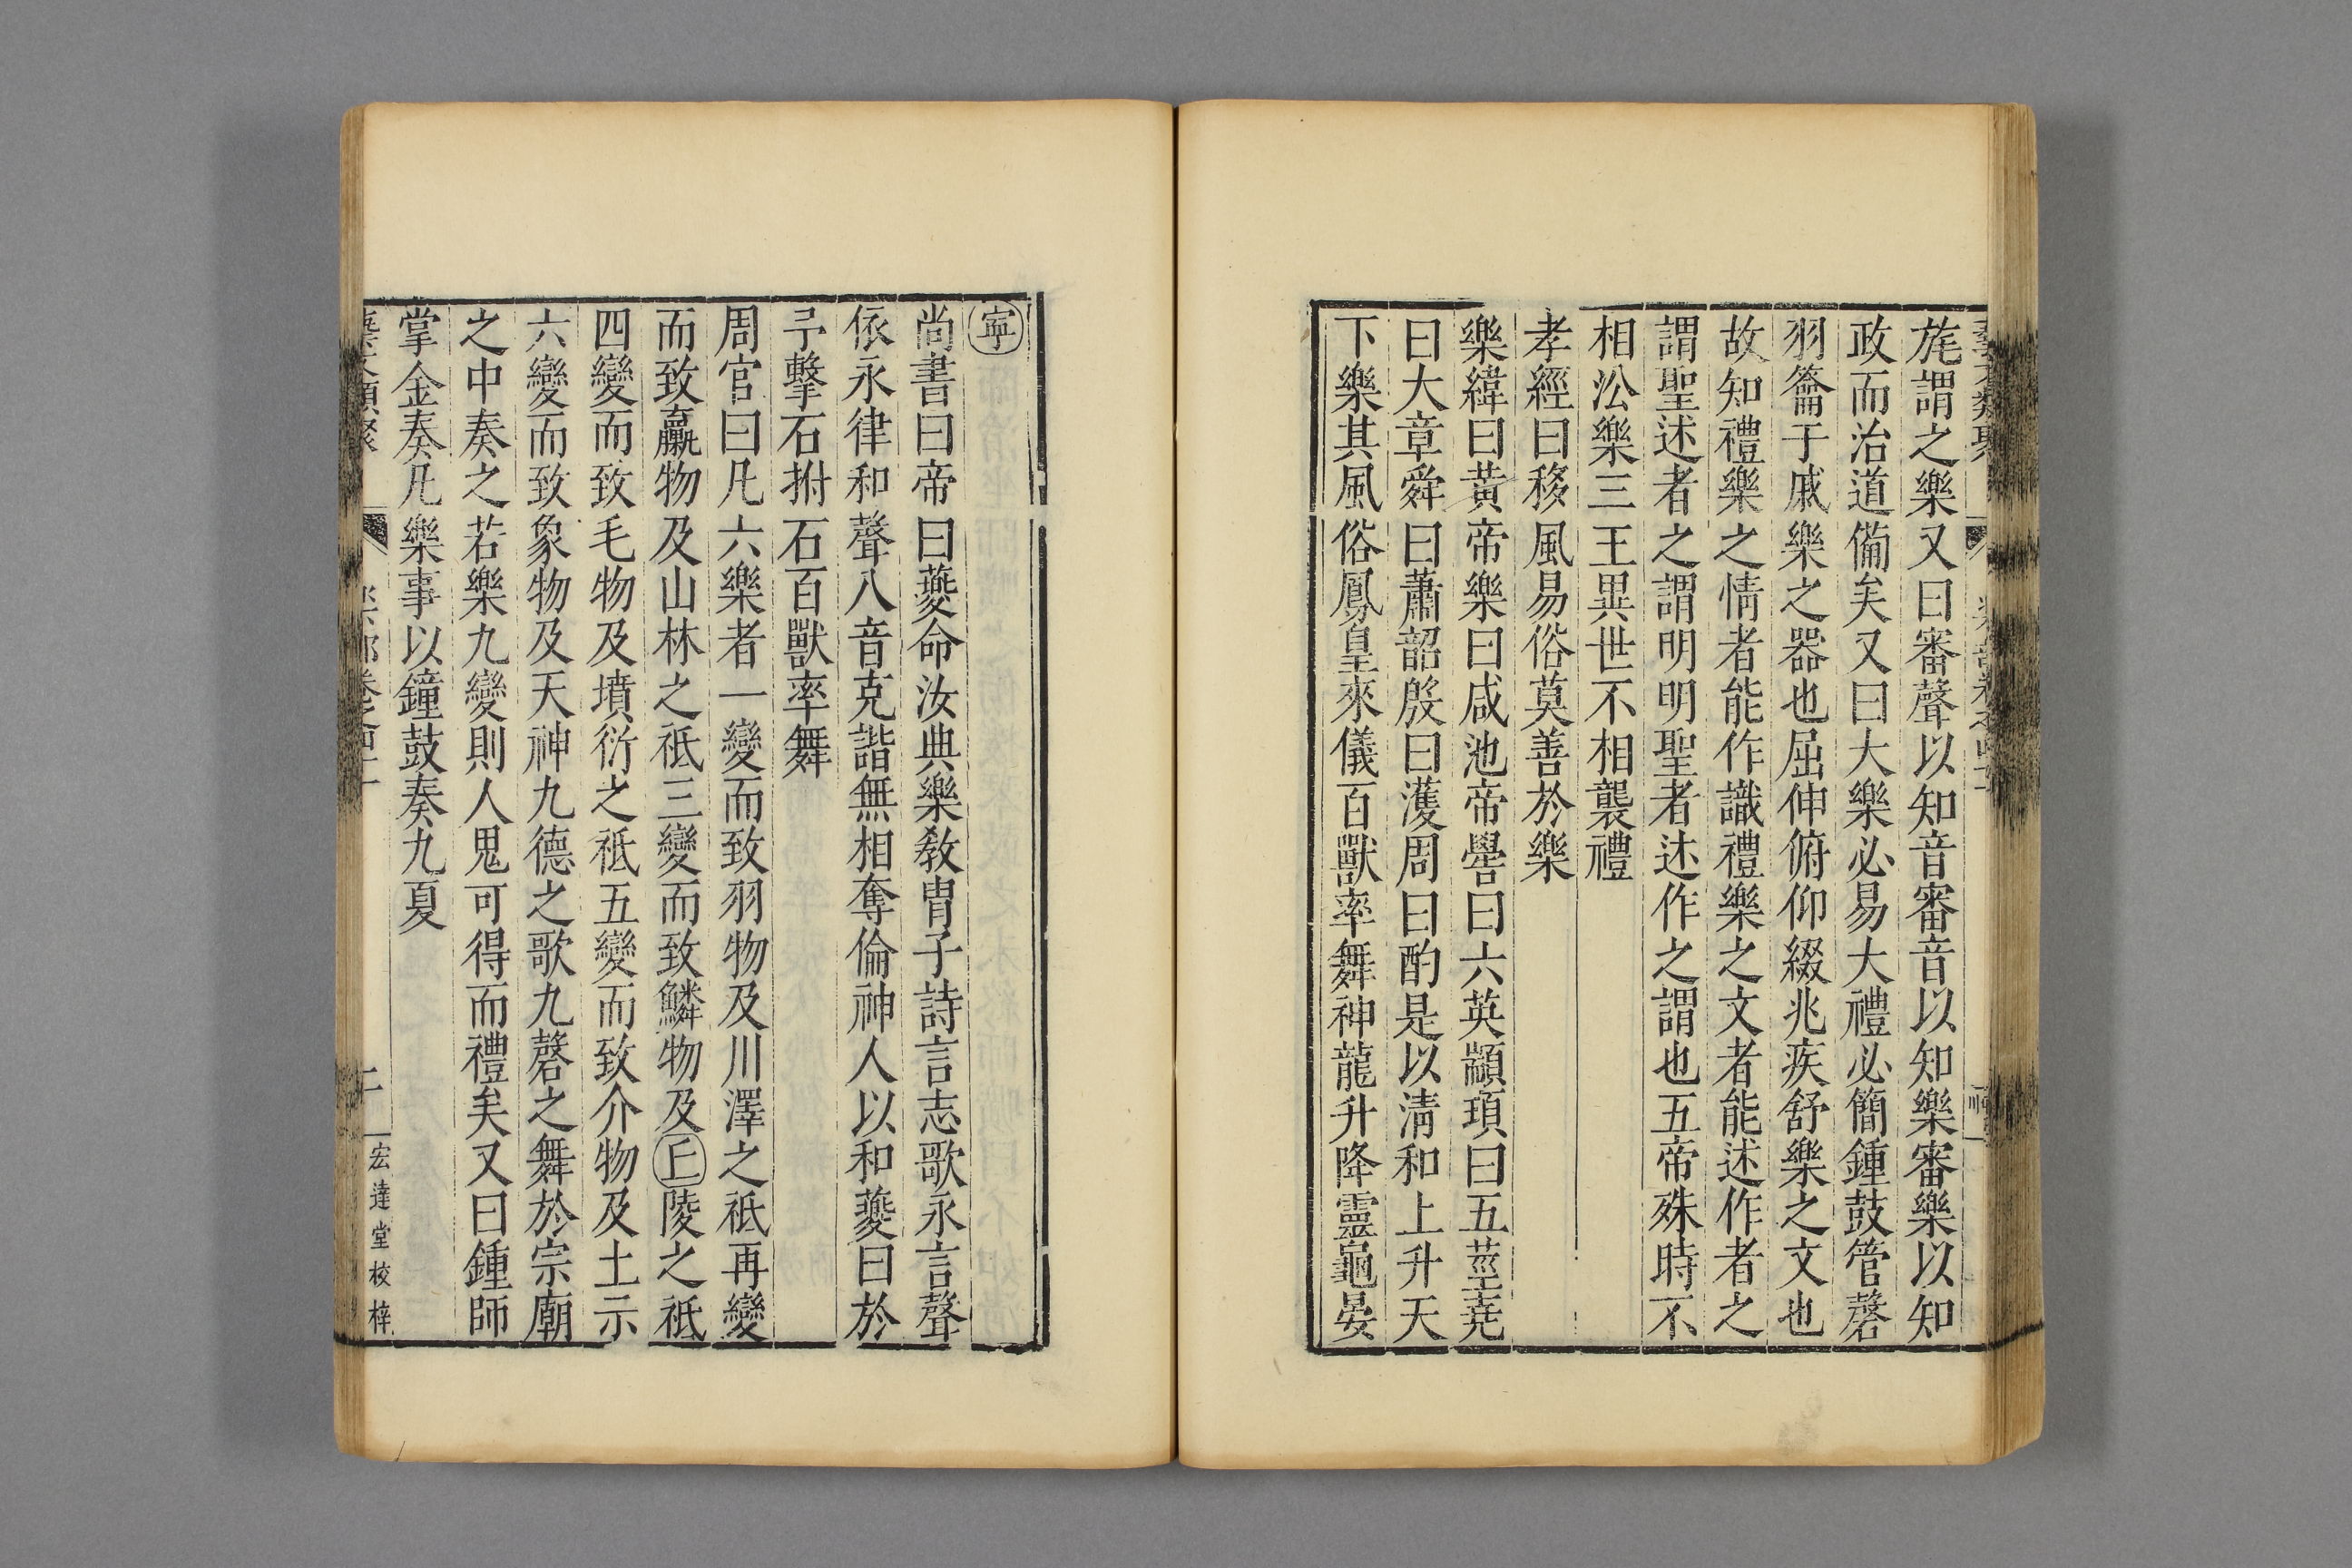 旄謂之樂又曰審聲以知音審音以知樂審樂以知
政而治道備矣又曰大樂必易大禮必簡鍾鼓管磬
羽籥于戚樂之器也屈伸俯仰綴兆疾舒樂之文也
故知禮樂之情者能作識禮樂之文者能述作者之
謂聖述者之謂明明聖者述作之謂也五帝殊時不
相㳂樂三王異世不相襲禮
孝經曰移風易俗莫善於樂
樂緯曰黃帝樂曰咸池帝嚳曰六英顓頊曰五莖堯
曰大章舜曰蕭韶殷曰濩周曰酌是以清和上升天
下樂其風俗鳳皇來儀百獸率舞神龍升降靈龜晏
寧
尚書曰帝曰夔命汝典樂敎胄子詩言志歌永言聲
依永律和聲八音克諧無相奪倫神人以和夔曰於
予擊石拊石百獸率舞
周官曰凡六樂者一變而致羽物及川澤之祗再變
而致臝物及山林之祗三變而致鱗物及丘陵之祗
四變而致毛物及墳衍之祗五變而致介物及土示
六變而致象物及天神九德之歌九磬之舞於宗廟
之中奏之若樂九變則人鬼可得而禮矣又曰鍾師
掌金奏凡樂事以鐘鼓奏九夏
宏達堂校梓